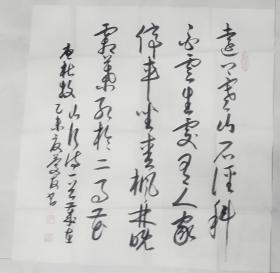 遠上寒山石徑斜
白雲生處有人家
停車坐愛楓林晚
霜葉紅於二月花
唐杜牧山行詩一首歲在
乙未夏